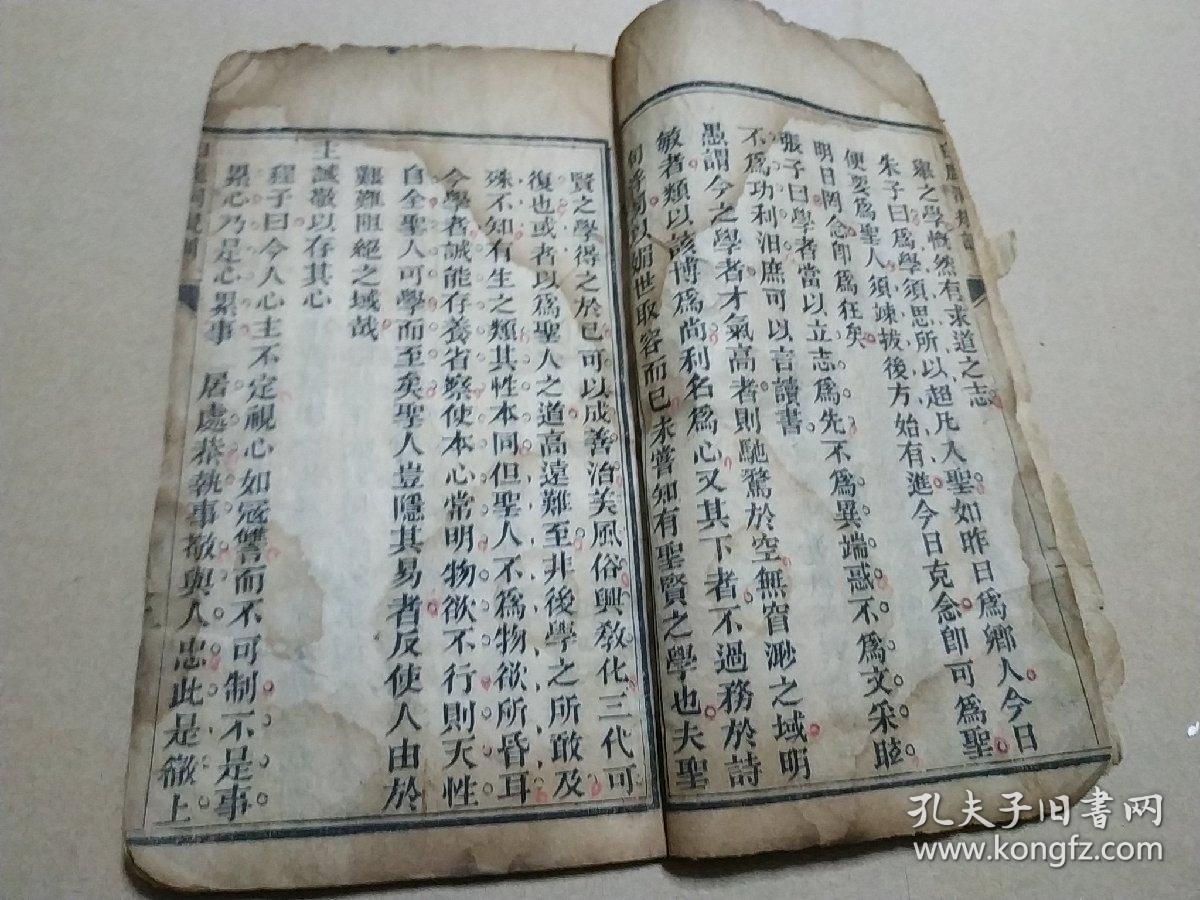 舉之學慨然有求道之志
朱子曰爲學須思所以超凡入聖如昨日爲鄉人今日
便要爲聖人須竦拔後方始有進今日克念卽可爲聖
明日罔念卽爲狂矣
張子曰學者當以立志爲先不爲異端惑不爲文采眩
不爲功利汨庶可以言讀書
愚謂今之學者才氣高者則馳騖於空無窅渺之域明
敏者類以該博爲尚利名爲心又其下者不過務於詩
句浮詞以媚世取容而已未嘗知有聖賢之學也夫聖
賢之學得之於己可以成善治美風俗興教化三代可
復也或者以爲聖人之道高遠難至非後學之所敢及
殊不知有生之類其性本同但聖人不爲物欲所昏耳
今學者誠能存養省察使本心常明物欲不行則天性
自全聖人可學而至矣聖人豈隱其易者反使人由於
艱難阻絕之域哉
主誠敬以存其心
程子曰今人心主不定視心如寇讐而不可制不是事
累心乃是心累事 居處恭執事敬與人忠此是徹上
孔夫子旧书网
www.kongfz.com